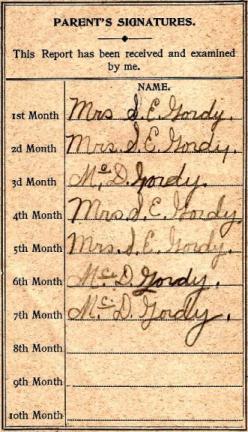 PARENT'S SIGNATURES.
This Report has been received and examined
by me.
NAME.
1st Month Mrs S. E. Gordy.
2d Month Mrs. S. E. Gordy,
3d Month Mc. D. Gordy.
4th Month Mrs. S. E. Gordy.
5th Month Mrs. S. E. Gordy.
6th Month Mc. D. Gordy.
7th Month Mc. D. Gordy.
8th Month
9th Month
10th Month